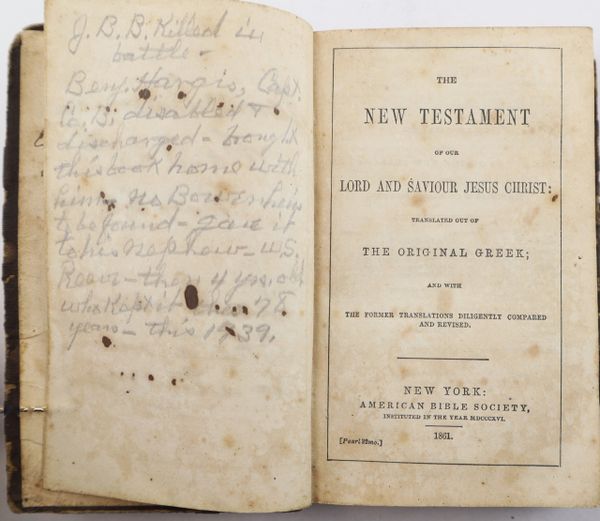 J. B. B. Killed in
battle -
Benj. Hargis, Capt.
Co. B. disabled &
discharged - brought
this book home with
him - no Bower heirs
to be found - gave it
to his nephew - W.S.
then 4 yrs. old
who kept it 78
years - this 1939.
THE
NEW TESTAMENT
OF OUR
LORD AND SAVIOUR JESUS CHRIST:
TRANSLATED OUT OF
THE ORIGINAL GREEK;
AND WITH
THE FORMER TRANSLATIONS DILIGENTLY COMPARED
AND REVISED.
NEW YORK:
AMERICAN BIBLE SOCIETY,
INSTITUTED IN THE YEAR MDCCCXVI.
1861.
[Pearl 32mo.]